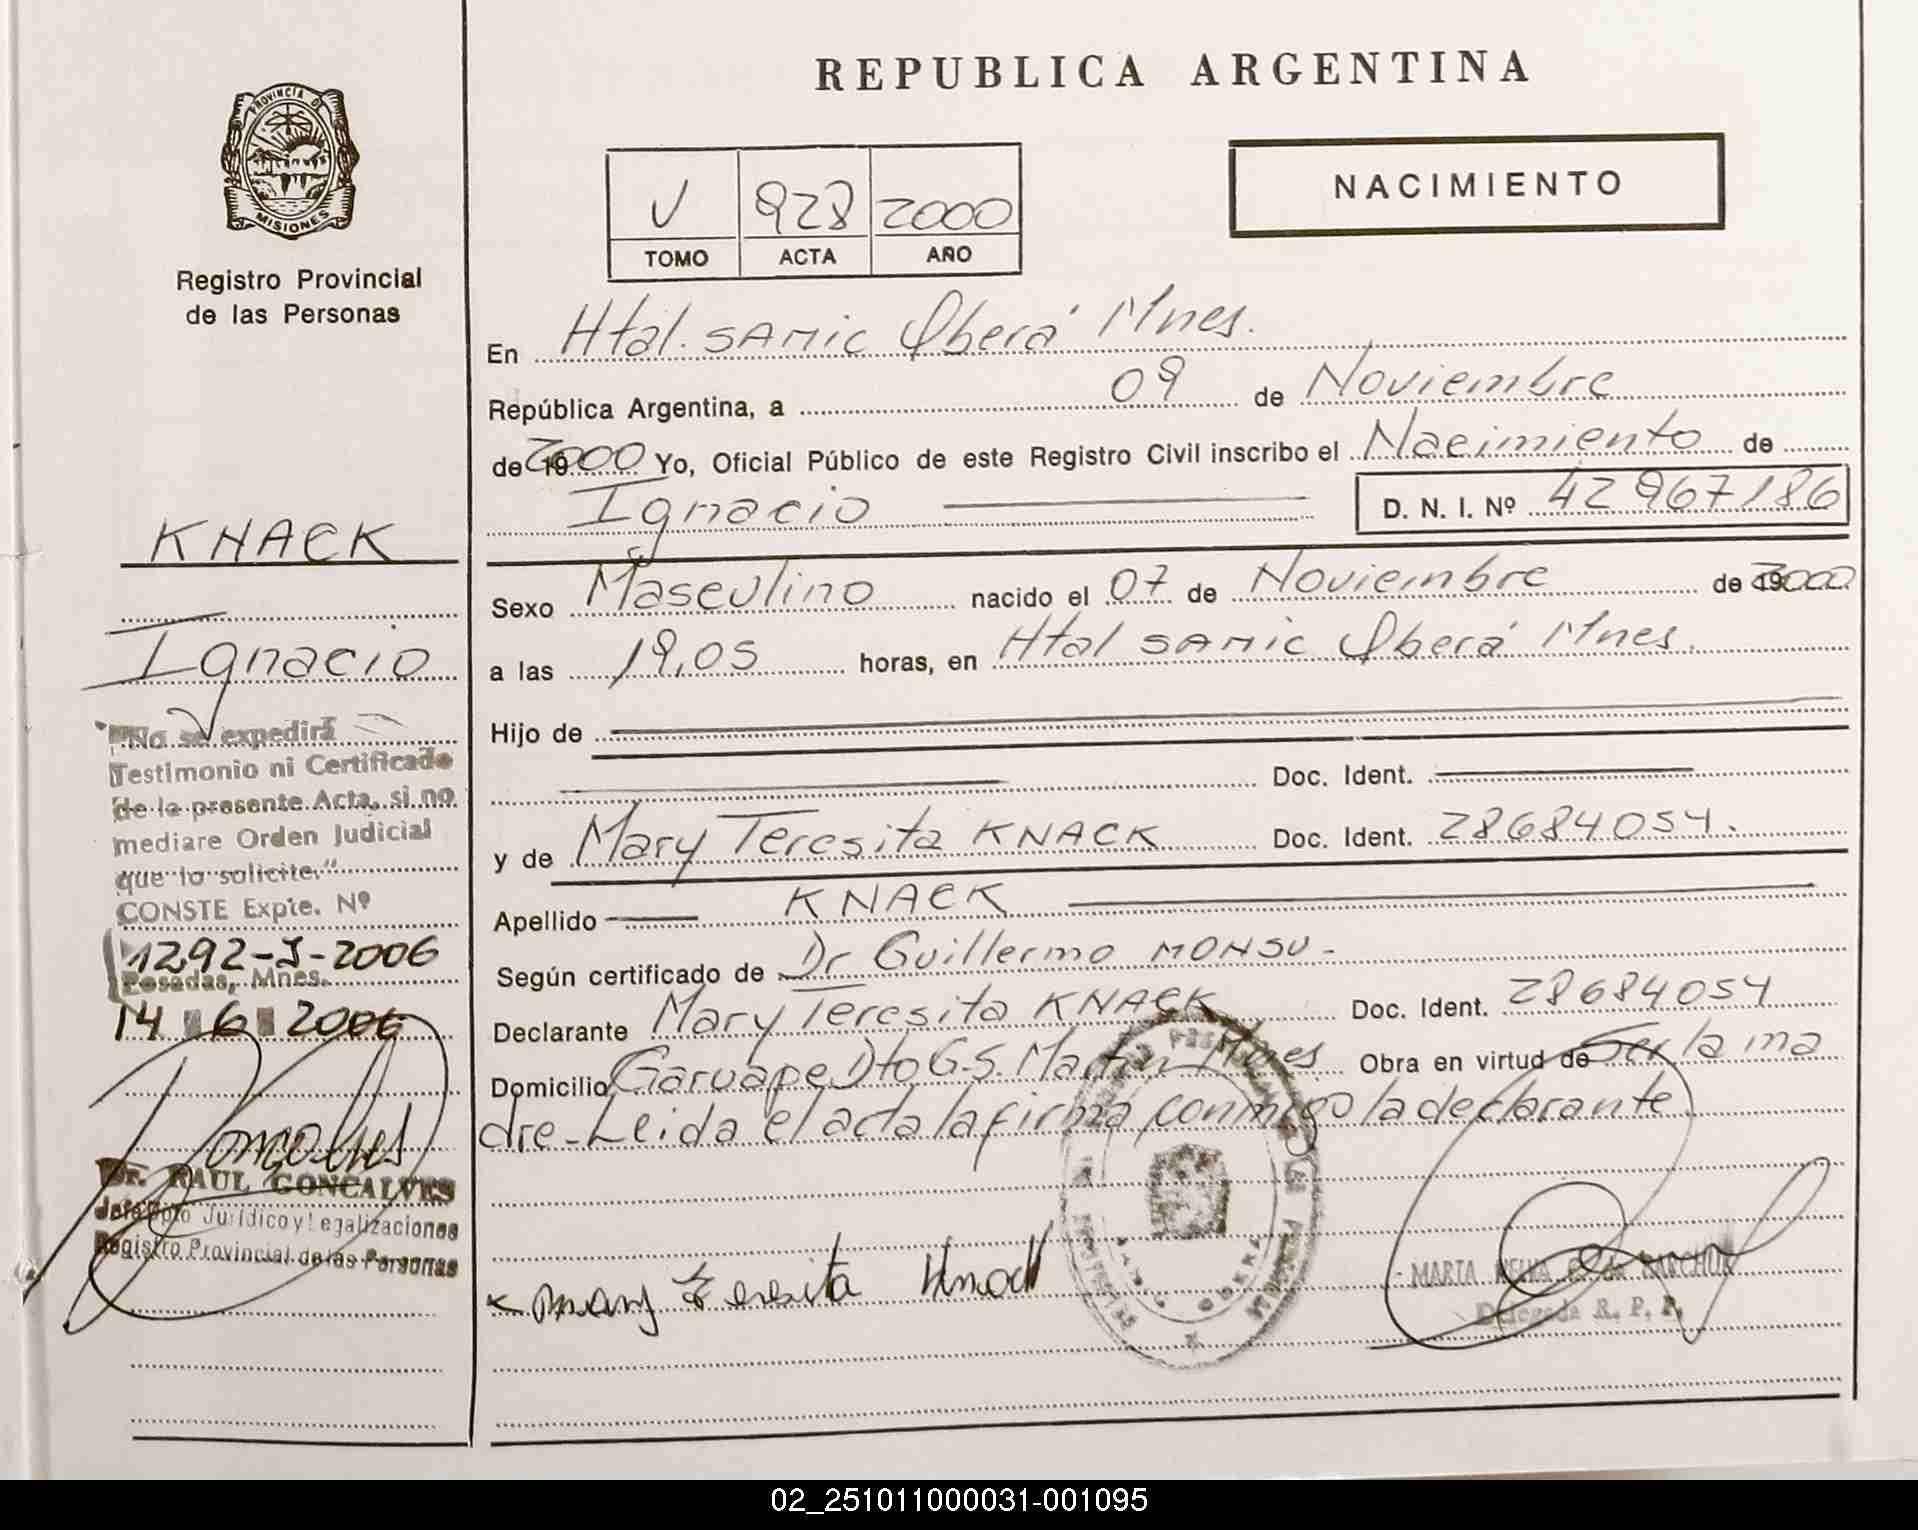 REPUBLICA ARGENTINA
PROVINCIA DE
MISIONES
Registro Provincial
de las Personas
V 928 2000
TOMO ACTA AÑO
NACIMIENTO
En Htal. SAMIC Oberá Mnes.
República Argentina, a 09 de Noviembre
de 2000 Yo, Oficial Público de este Registro Civil inscribo el Nacimiento de
Ignacio D. N. I. Nº 42967186
Sexo Masculino nacido el 07 de Noviembre de 2000
a las 19,05 horas, en Htal SAMIC Oberá Mnes.
Hijo de
Doc. Ident.
y de Mary Teresita KNACK Doc. Ident. 28684054.
Apellido KNACK
Según certificado de Dr Guillermo MONSU-
Declarante Mary Teresita KNACK Doc. Ident. 28684054
Domicilio Garuape Dto G.S. Martin Mnes Obra en virtud de Ser la ma
dre-Leida el acta la firma conmigo la declarante
mary teresita Knack
MARTA
Delegada R. P. P.
KNACK
Ignacio
"No se expedirá
Testimonio ni Certificado
de la presente Acta, si no
mediare Orden Judicial
que lo solicite."
CONSTE Expte. Nº
1292-J-2006
Posadas, Mnes.
14 6 2006
Dr. RAUL GONCALVES
Jefe Dpto Jurídico y Legalizaciones
Registro Provincial de las Personas
02_251011000031-001095